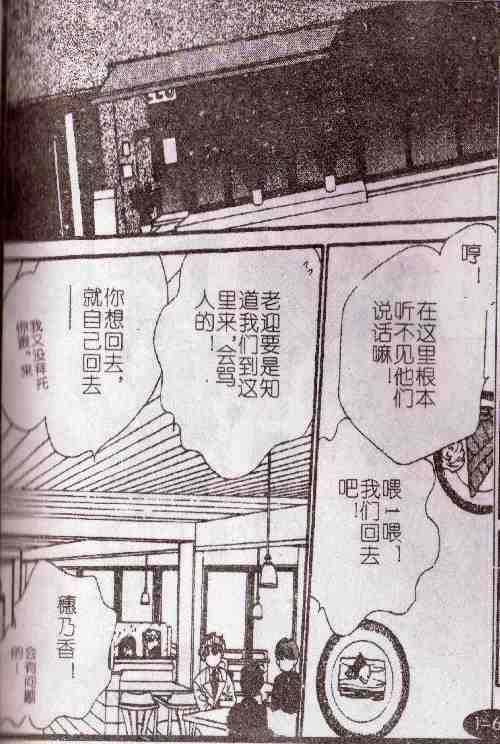 哼！
在这里根本
听不见他们
说话嘛！
喂！喂！
我们回去
吧！
老迎要是知
道我们到这
里来，会骂
人的！
你想回去，
就自己回去
——
我又没拜托
你跟
穗乃香！
会有问题
的！